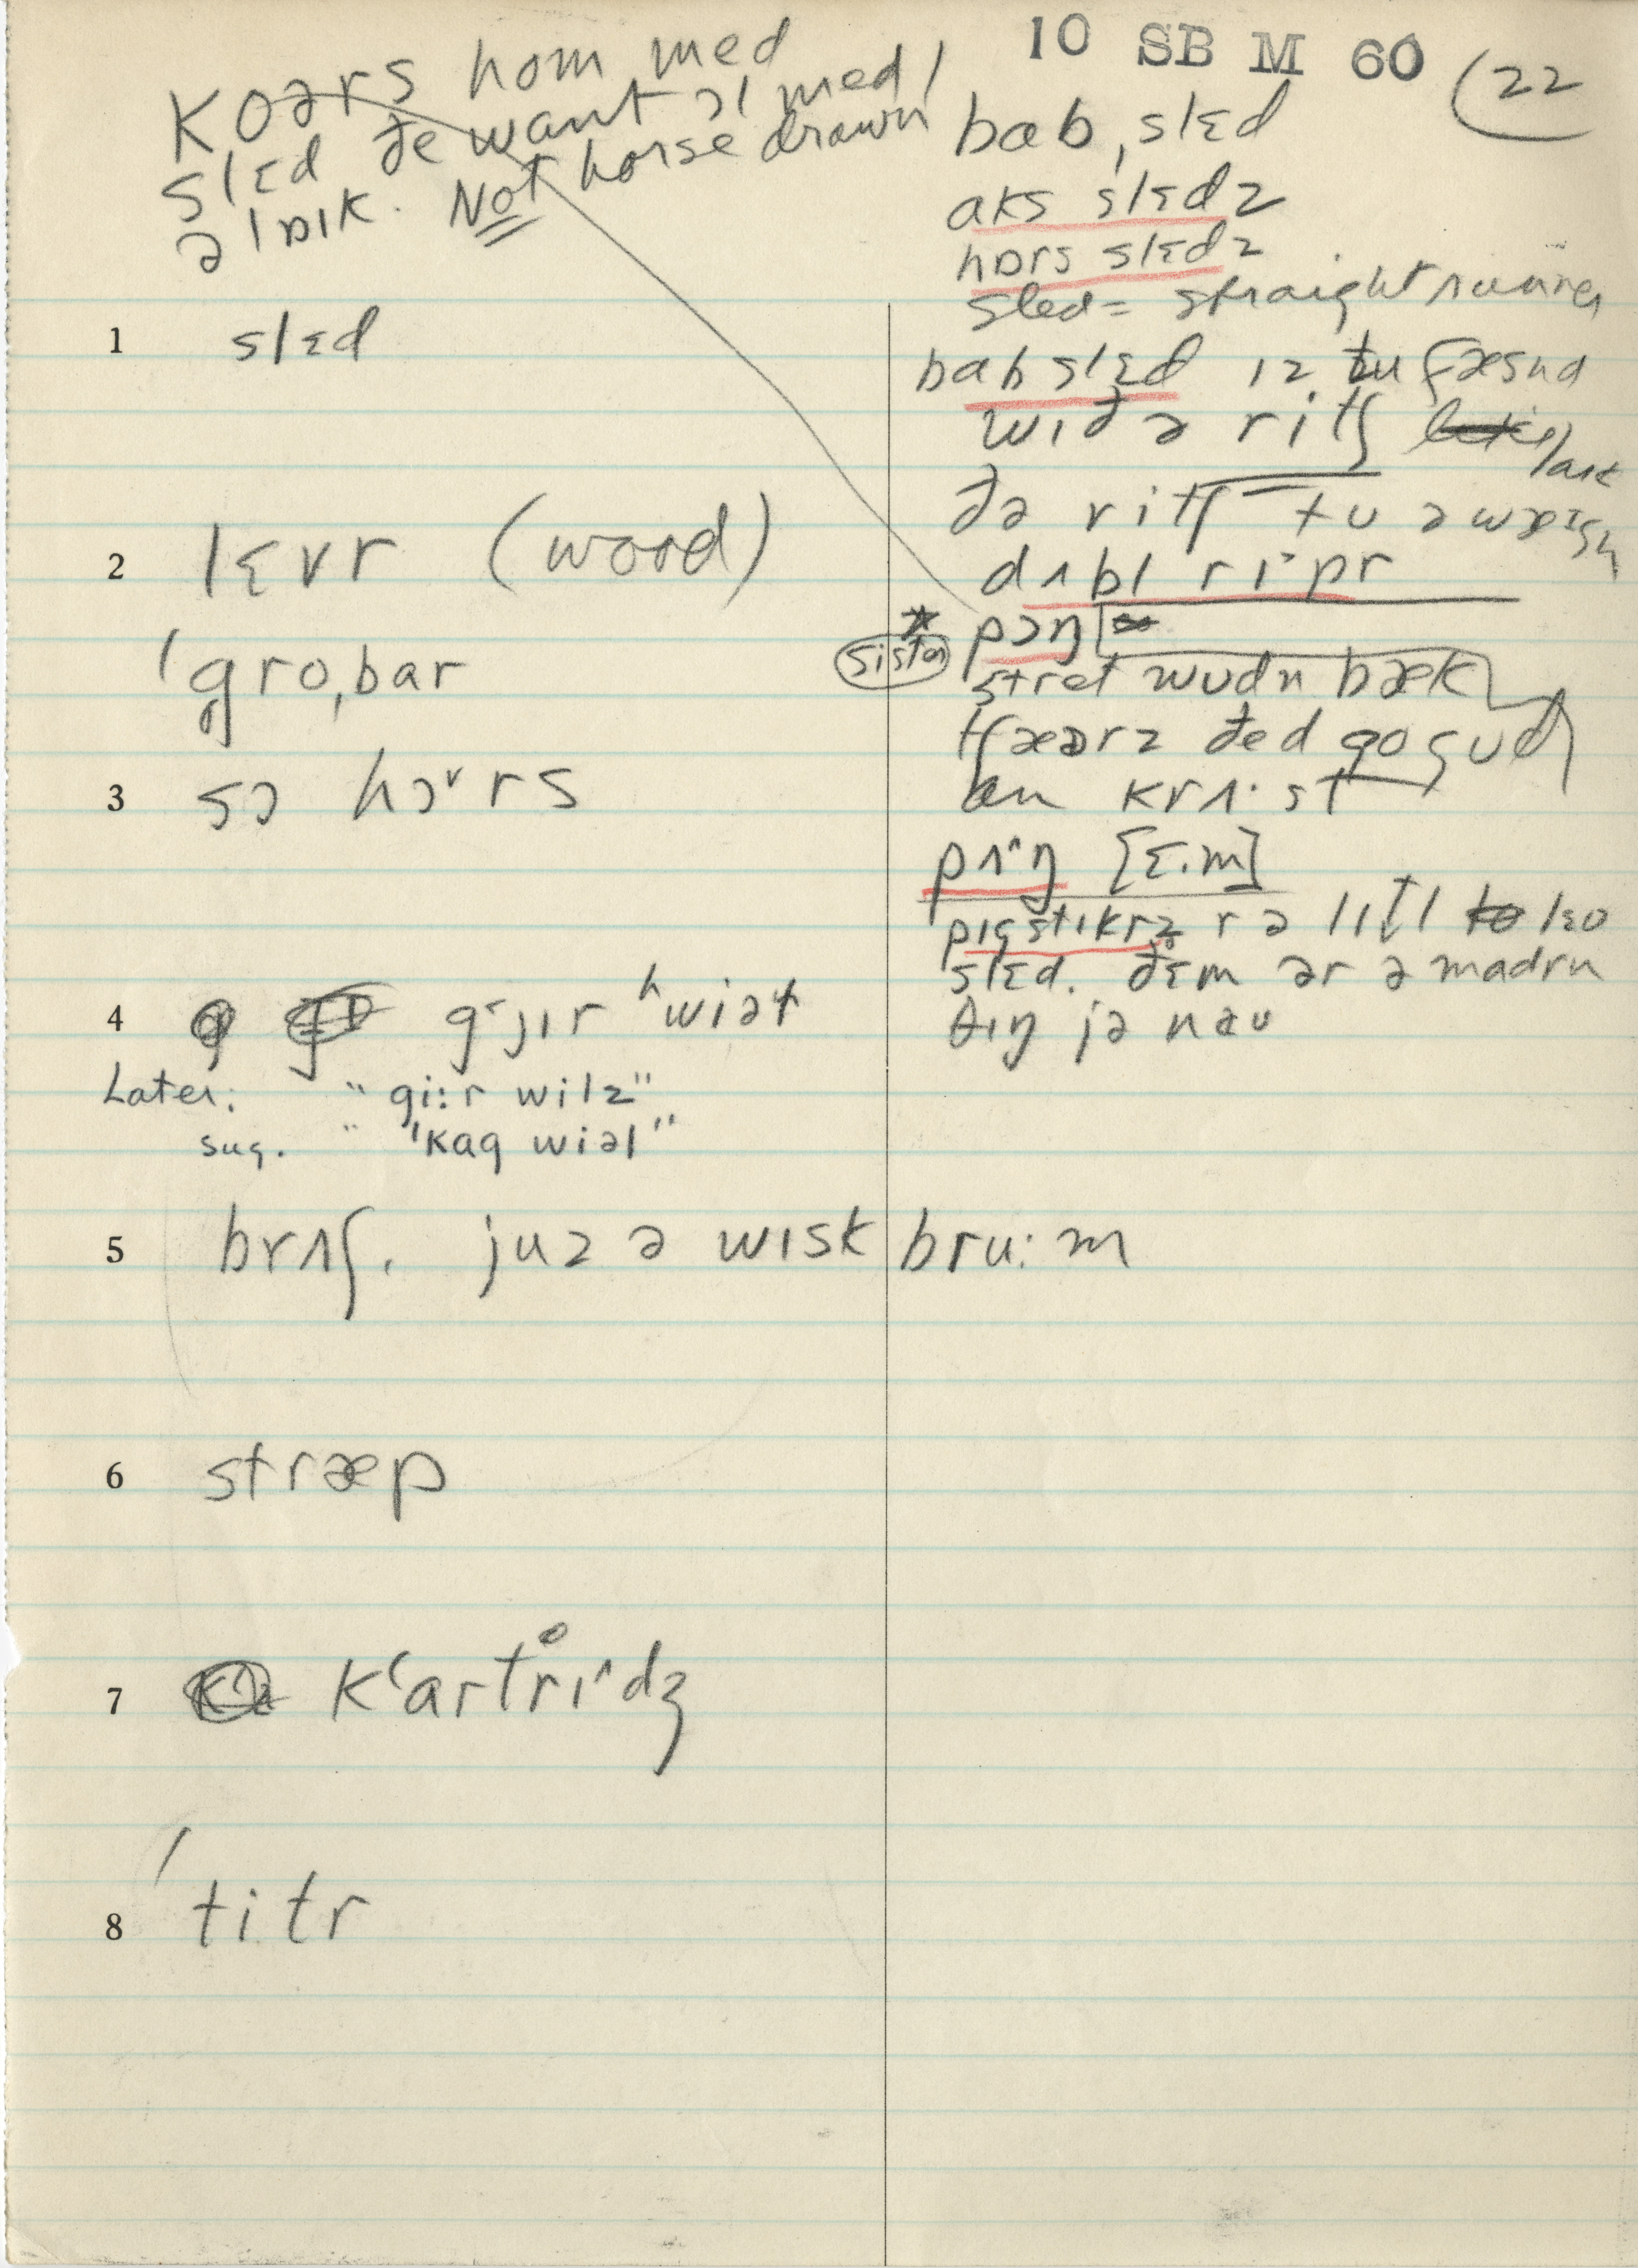 10 SB M 60 (22
Koərs hom med
slɛd ðe want ɔl med
əlɒɪk. Not horse drawn
bab,slɛd
aks slɛdz
hɒrs slɛdz
sled = straight runner
babslɛd ɪz tu fæsnd
wɪð ə ritʃ
ðə ritʃ tu ə
dʌbl rɪˑpr
pɔŋ
sister
stret wudn bæk
ðed go
krʌˑst
pʌ^ŋ [ɛ.m]
pɪgstɪkrz r ə lɪtl lɛo
slɛd. ðɛm ər ə madrn
θɪŋ jə nəu
1 slɛd
2 lɛvr (wood)
'gro,bar
3 sɔ hɔ˅rs
4 gʳɟɪr ʰwiəɫ
Later: "gi:r wilz"
sug. " "'kag wiəl"
5 brʌʃ. juz ə wɪsk bru:m
6 stræp
7 kʻartr̊ɪ^dʒ
8 'titr